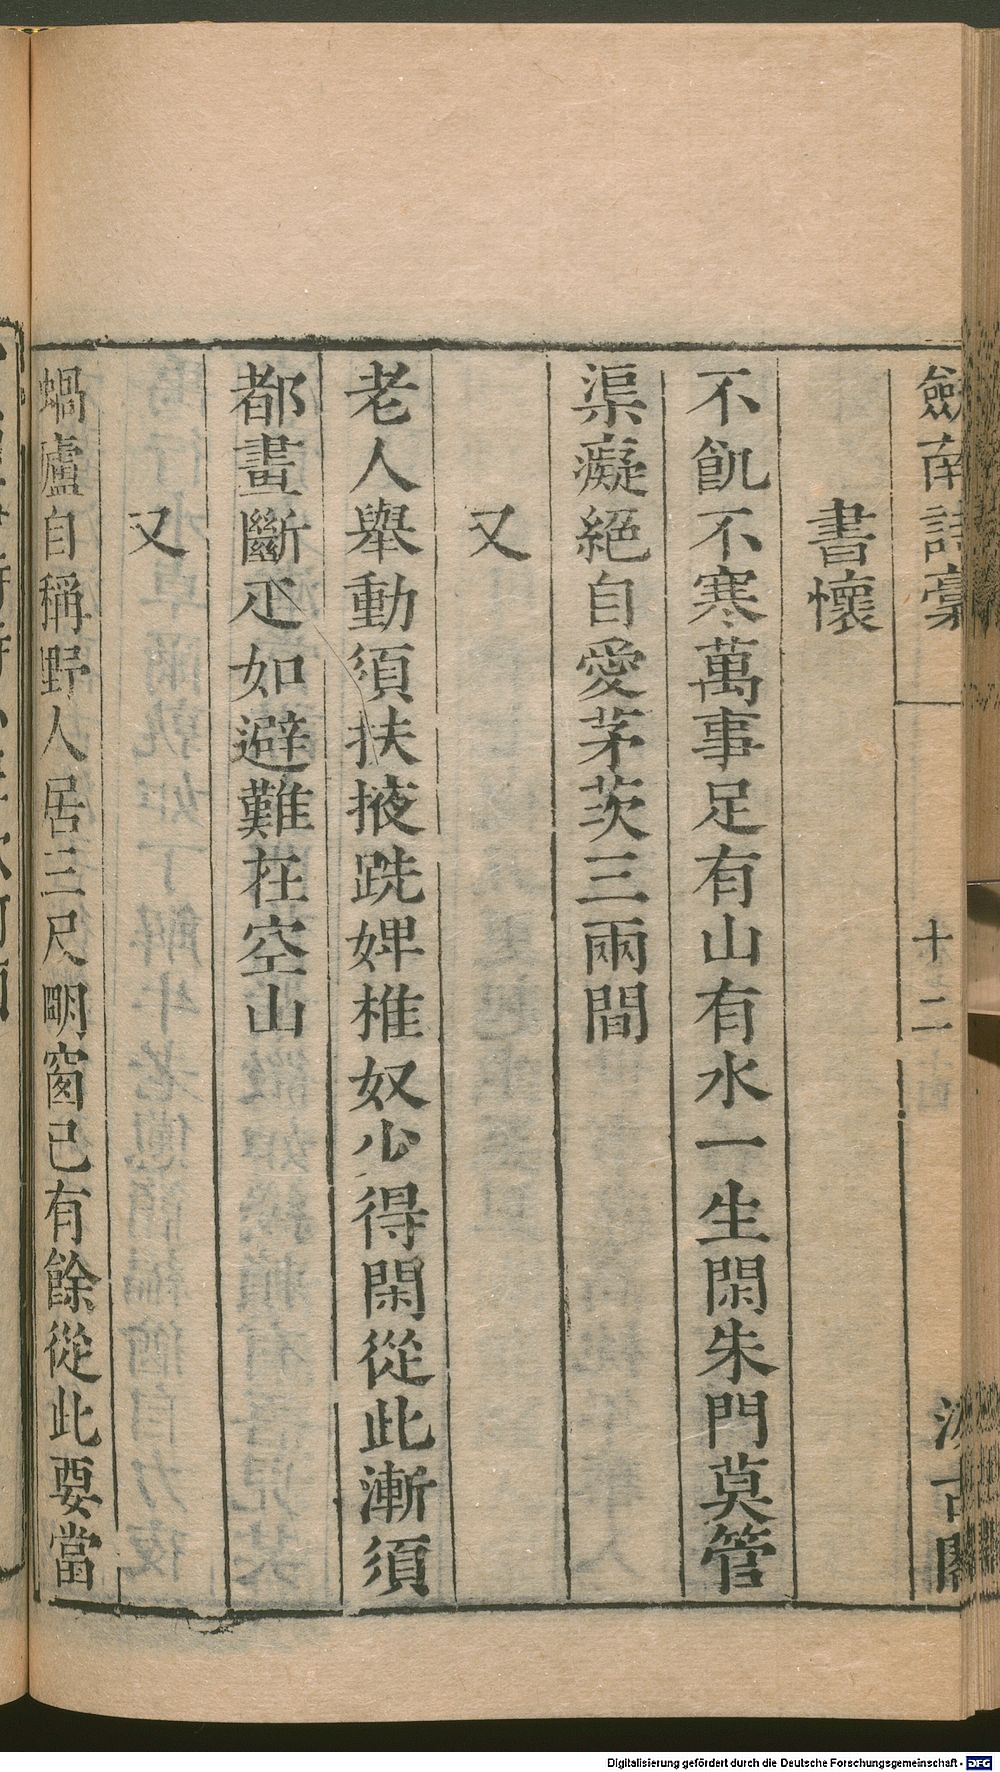 劍南詩稾
十二
汲古閣
書懷
不飢不寒萬事足有山有水一生閑朱門莫管
渠癡絕自愛茅茨三兩間
又
老人舉動須扶掖跣婢椎奴少得閑從此漸須
都畫斷正如避難在空山
又
蝸廬自稱野人居三尺明窗已有餘從此要當
Digitalisierung gefördert durch die Deutsche Forschungsgemeinschaft - DFG